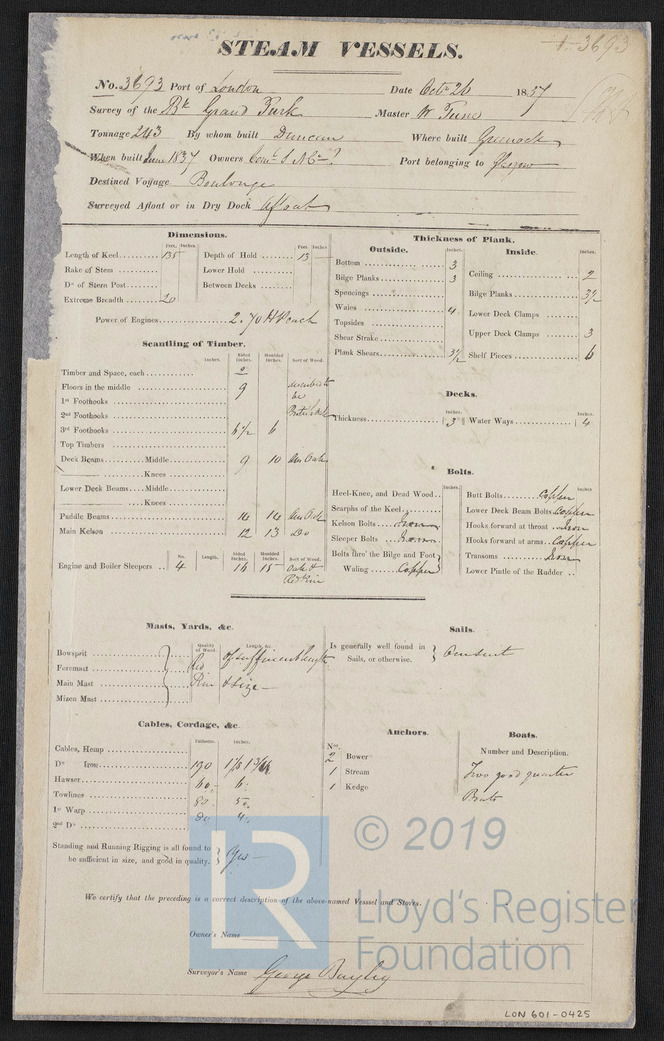 3693
STEAM VESSELS.
No. 3693 Port of London Date Octr 26 1837
Survey of the Grand Turk Master W
Tonnage 243 By whom built Duncan Where built Greenock
When built June 1837 Owners Port belonging to Glasgow
Destined Voyage Boulogne
Surveyed Afloat or in Dry Dock Afloat
Dimensions.
Feet. Inches. Feet. Inches
Length of Keel 135 Depth of Hold 13
Rake of Stem Lower Hold
Do of Stern Post Between Decks
Extreme Breadth 20
Power of Engines 2. 70 H P each
Thickness of Plank.
Outside. Inside.
Inches. Inches.
Bottom 3
Bilge Planks 3
Spencings
Wales 4
Topsides
Shear Strake
Plank Shears 3½
Ceiling 2
Bilge Planks 3½
Lower Deck Clamps
Upper Deck Clamps 3
Shelf Pieces 6
Scantling of Timber.
Inches. Sided Inches. Moulded Inches. Sort of Wood.
Timber and Space, each
Floors in the middle 9
1st Foothooks
2nd Foothooks
3rd Foothooks 6½ 6
Top Timbers
Deck Beams Middle 9 10 Am Oak
Knees
Lower Deck Beams Middle
Knees
Paddle Beams 14 14 Am Oak
Main Kelson 12 13 Do
No. Length. Sided Inches. Moulded Inches. Sort of Wood.
Engine and Boiler Sleepers 4 16 15 Oak & Red Pine
Decks.
Inches. Inches.
Thickness 3 Water Ways 4
Bolts.
Inches. Inches
Heel-Knee, and Dead Wood
Scarphs of the Keel
Kelson Bolts Iron
Sleeper Bolts Iron
Bolts thro' the Bilge and Foot
Waling Copper
Butt Bolts Copper
Lower Deck Beam Bolts Copper
Hooks forward at throat Iron
Hooks forward at arms Copper
Transoms Iron
Lower Pintle of the Rudder
Masts, Yards, &c.
Quality of Wood. Length, &c.
Bowsprit
Foremast
Main Mast
Mizen Mast
Red Pine of sufficient length & size
Sails.
Is generally well found in
Sails, or otherwise.
Cables, Cordage, &c
Fathoms. Inches.
Cables, Hemp
Do Iron 190
Hawser 60 6
Towlines 80 5
1st Warp 80 4
2nd Do
Standing and Running Rigging is all found to
be sufficient in size, and good in quality. Yes
Anchors.
Nos.
2 Bower
1 Stream
1 Kedge
Boats.
Number and Description.
Two good quarter
Boats
We certify that the preceding is a correct description of the above-named Vessel and Stores.
Owner's Name
Surveyor's Name George Bayley
LR
© 2019
Lloyd's Register
Foundation
LON 601-0425